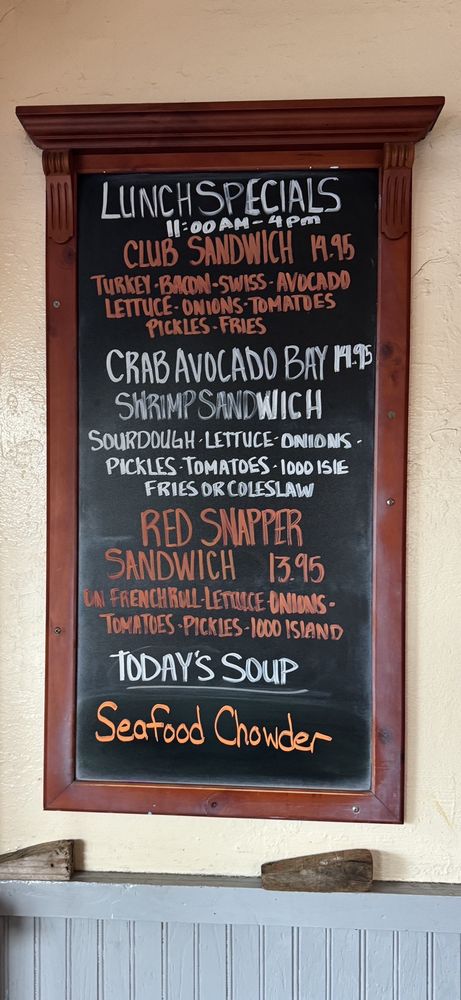 LUNCH SPECIALS
11:00AM-4PM
CLUB SANDWICH 14.95
TURKEY-BACON-SWISS-AVOCADO
LETTUCE-ONIONS-TOMATOES
PICKLES-FRIES
CRAB AVOCADO BAY 14.95
SHRIMP SANDWICH
SOURDOUGH-LETTUCE-ONIONS-
PICKLES-TOMATOES-1000 ISIE
FRIES OR COLESLAW
RED SNAPPER
SANDWICH 13.95
ON FRENCH ROLL-LETTUCE-ONIONS-
TOMATOES-PICKLES-1000 ISLAND
TODAY'S SOUP
Seafood Chowder